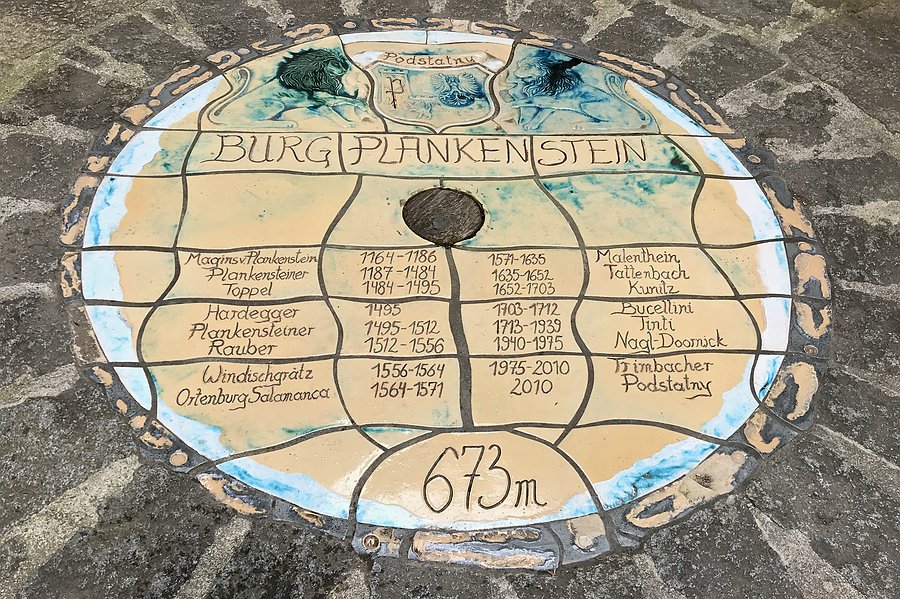 Podstatny
P
BURG PLANKENSTEIN
Magins v. Plankenstein 1164-1186
Plankensteiner 1187-1484
Toppel 1484-1495
Hardegger 1495
Plankensteiner 1495-1512
Rauber 1512-1556
Windischgrätz 1556-1564
Ortenburg Salamanca 1564-1571
1571-1635 Malenthein
1635-1652 Tattenbach
1652-1703 Kunitz
1703-1712 Bucellini
1713-1939 Tinti
1940-1975 Nagl-Doornick
1975-2010 Trimbacher
2010 Podstatny
673m